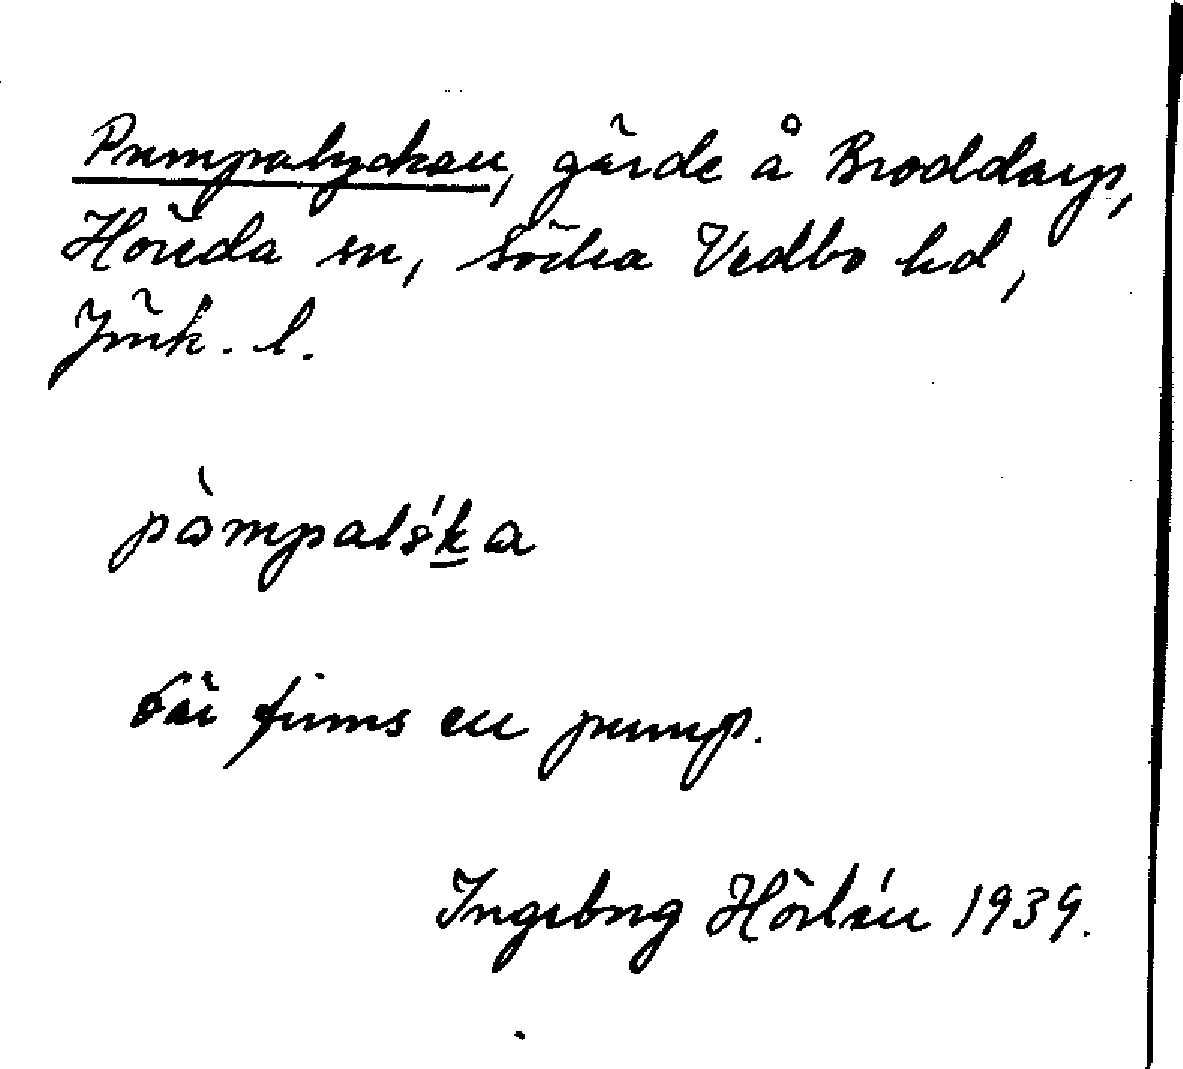 Pumpalyckan, gärde å Broddarp,
Höreda sn, Södra Vedbo hd,
Jönk. l.
pòmpalø'ka
Där finns en pump.
Ingeborg Hörlén 1939.